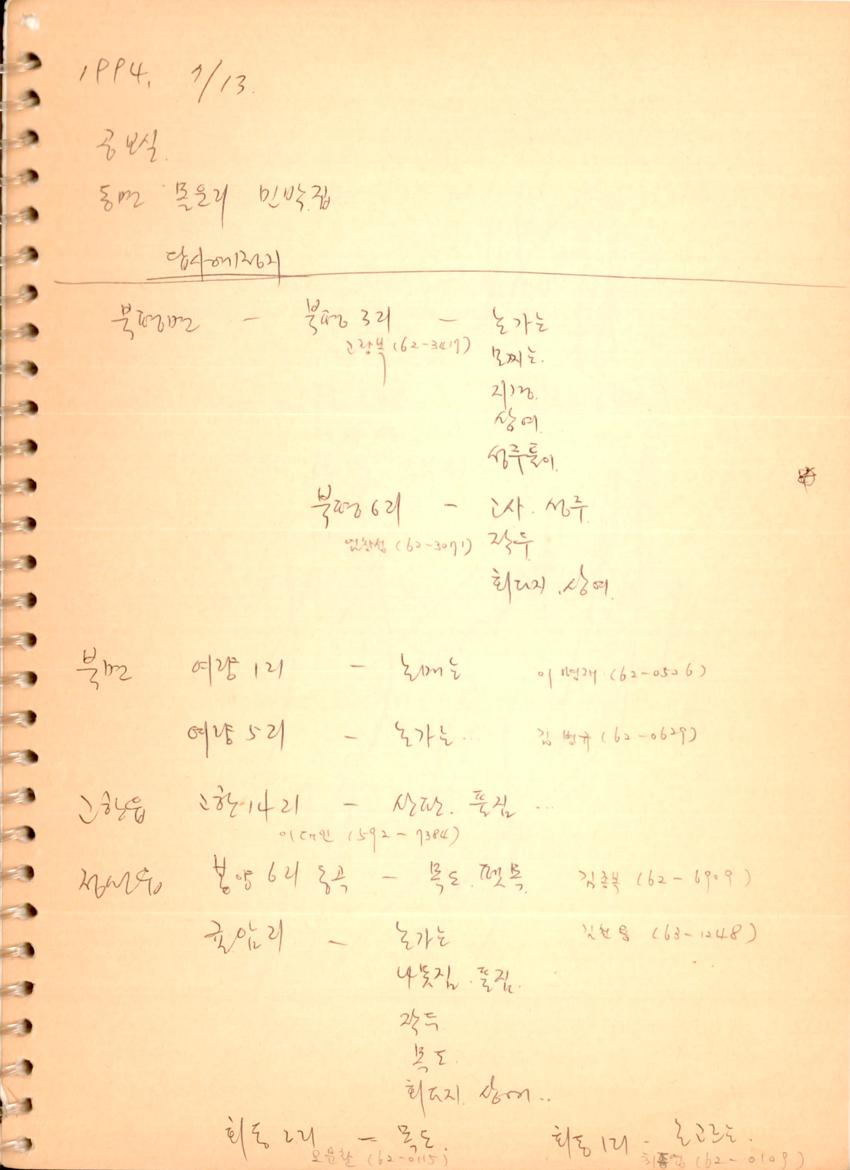 1994. 7/13.
공보실.
동면 몰운리 민박집
답사예정지
북평면 - 북평 3리 - 논가는
(62-3417) 모찌는.
지경.
상여.
성주풀이.
북평 6리 - 고사. 성주.
(62-3071) 작두.
회다지. 상여.
북면 여량 1리 - 논매는 이명재 (62-0526)
여량 5리 - 논가는... 김병규 (62-0629)
고한읍 고한 14리 - 산판. 풀짐 ...
이대인 (592-7384)
정선읍 봉양 6리 동곡 - 목도. 뗏목. 김종복 (62-6909)
귤암리 - 논가는 (63-1248)
나뭇짐. 풀짐.
작두
목도.
회다지. 상여..
회동 2리 - 목도. 회동 1리 - 논고르는.
(62-0115) (62-0109)